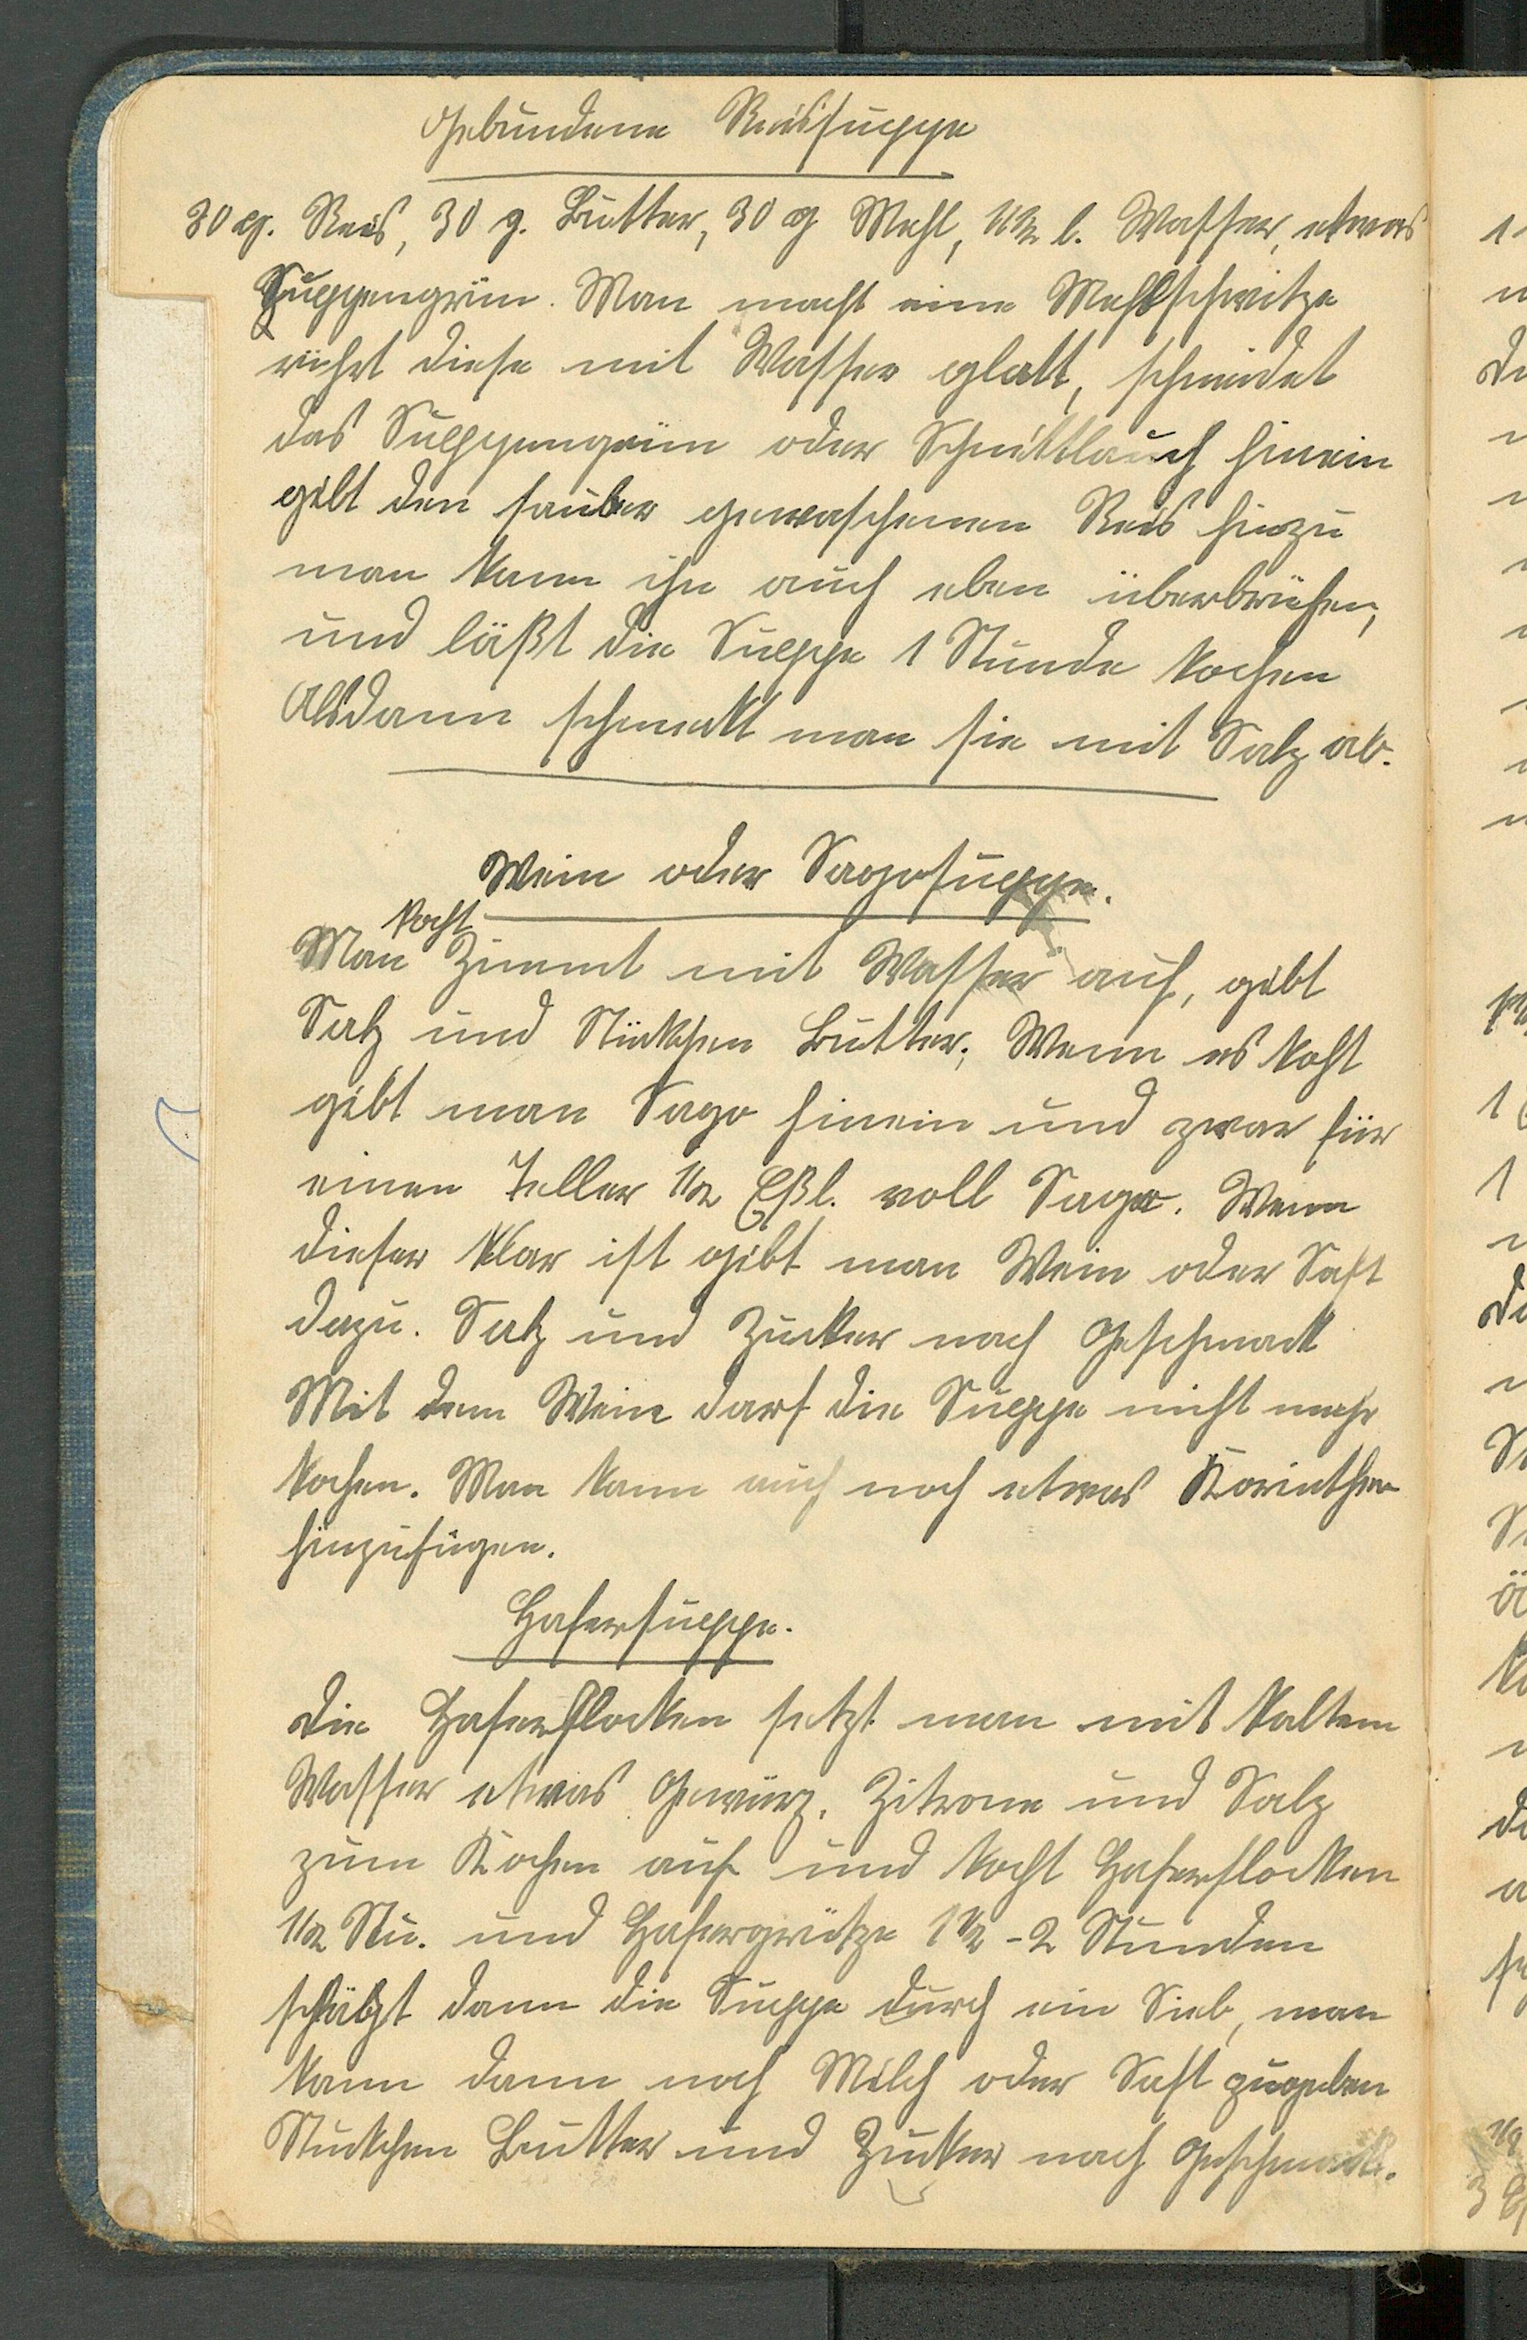 Gebundene Reissuppe
30 g. Reis, 30 g. Butter, 30 g Mehl, 1 1/2 l. Wasser, etwas
Suppengrün. Man macht eine Mehlschwitze
rührt diese mit Wasser glatt, schneidet
das Suppengrün oder Schnittlauch hinein
gibt den sauber gewaschenen Reis hinzu
man kann ihn auch eben überbrühen,
und läßt die Suppe 1 Stunde kochen
Alsdann schmekt man sie mit Salz ab.
Wein oder Sagosuppe.
kocht
Man Zimmt mit Wasser auf, gibt
Salz und Stükchen Butter; Wenn es kocht
gibt man Sago hinein und zwar für
einen Teller 1/2 Eßl. voll Sago. Wenn
dieser klar ist gibt man Wein oder Saft
dazu. Salz und Zucker nach Geschmack
Mit dem Wein darf die Suppe nicht mehr
kochen. Man kann auch noch etwas Korinthen
hinzufügen.
Hafersuppe.
Die Haferflocken setzt man mit kaltem
Wasser etwas Gewürz, Zitrone und Salz
zum Kochen auf und kocht Haferflocken
1/2 Stu. und Hafergrütze 1 1/2 - 2 Stunden
schlägt dann die Suppe durch ein Sieb, man
kann dann noch Milch oder Saft zugeben
Stuckchen Butter und Zucker nach Geschmack.